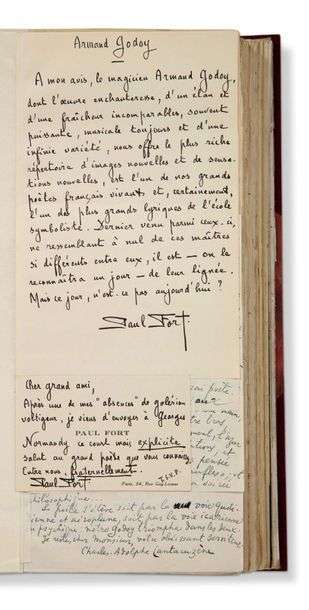 Armand Godoy
A mon avis, le magicien Armand Godoy,
dont l'œuvre enchanteresse, d'un élan et
d'une fraîcheur incomparables, souvent
puissante, musicale toujours et d'une
infinie variété, nous offre le plus riche
répertoire d'images nouvelles et de sensa-
tions nouvelles, est l'un de nos grands
poètes français vivants et, certainement,
l'un des plus grands lyriques de l'école
symboliste. Dernier venu parmi ceux-ci,
ne ressemblant à nul de ces maîtres
si différents entre eux, il est — on le
reconnaîtra un jour — de leur lignée.
Mais ce jour, n'est-ce pas aujourd'hui ?
Paul Fort
Cher grand ami,
Après une de mes "absences" de galérien
voltigeur, je viens d'envoyer à Georges
PAUL FORT
Normandy ce court mais explicite
salut au grand poète que vous connaissez
Entre nous, fraternellement.
Paul Fort
Paris, 34, Rue Gay-Lussac
philosophique.
Le poète s'élève soit par la voix
soit par la voix
notre Godoy triomphe dans les deux.
Je reste, cher Monsieur, votre obéissant serviteur
Charles-Adolphe Cantacuzène